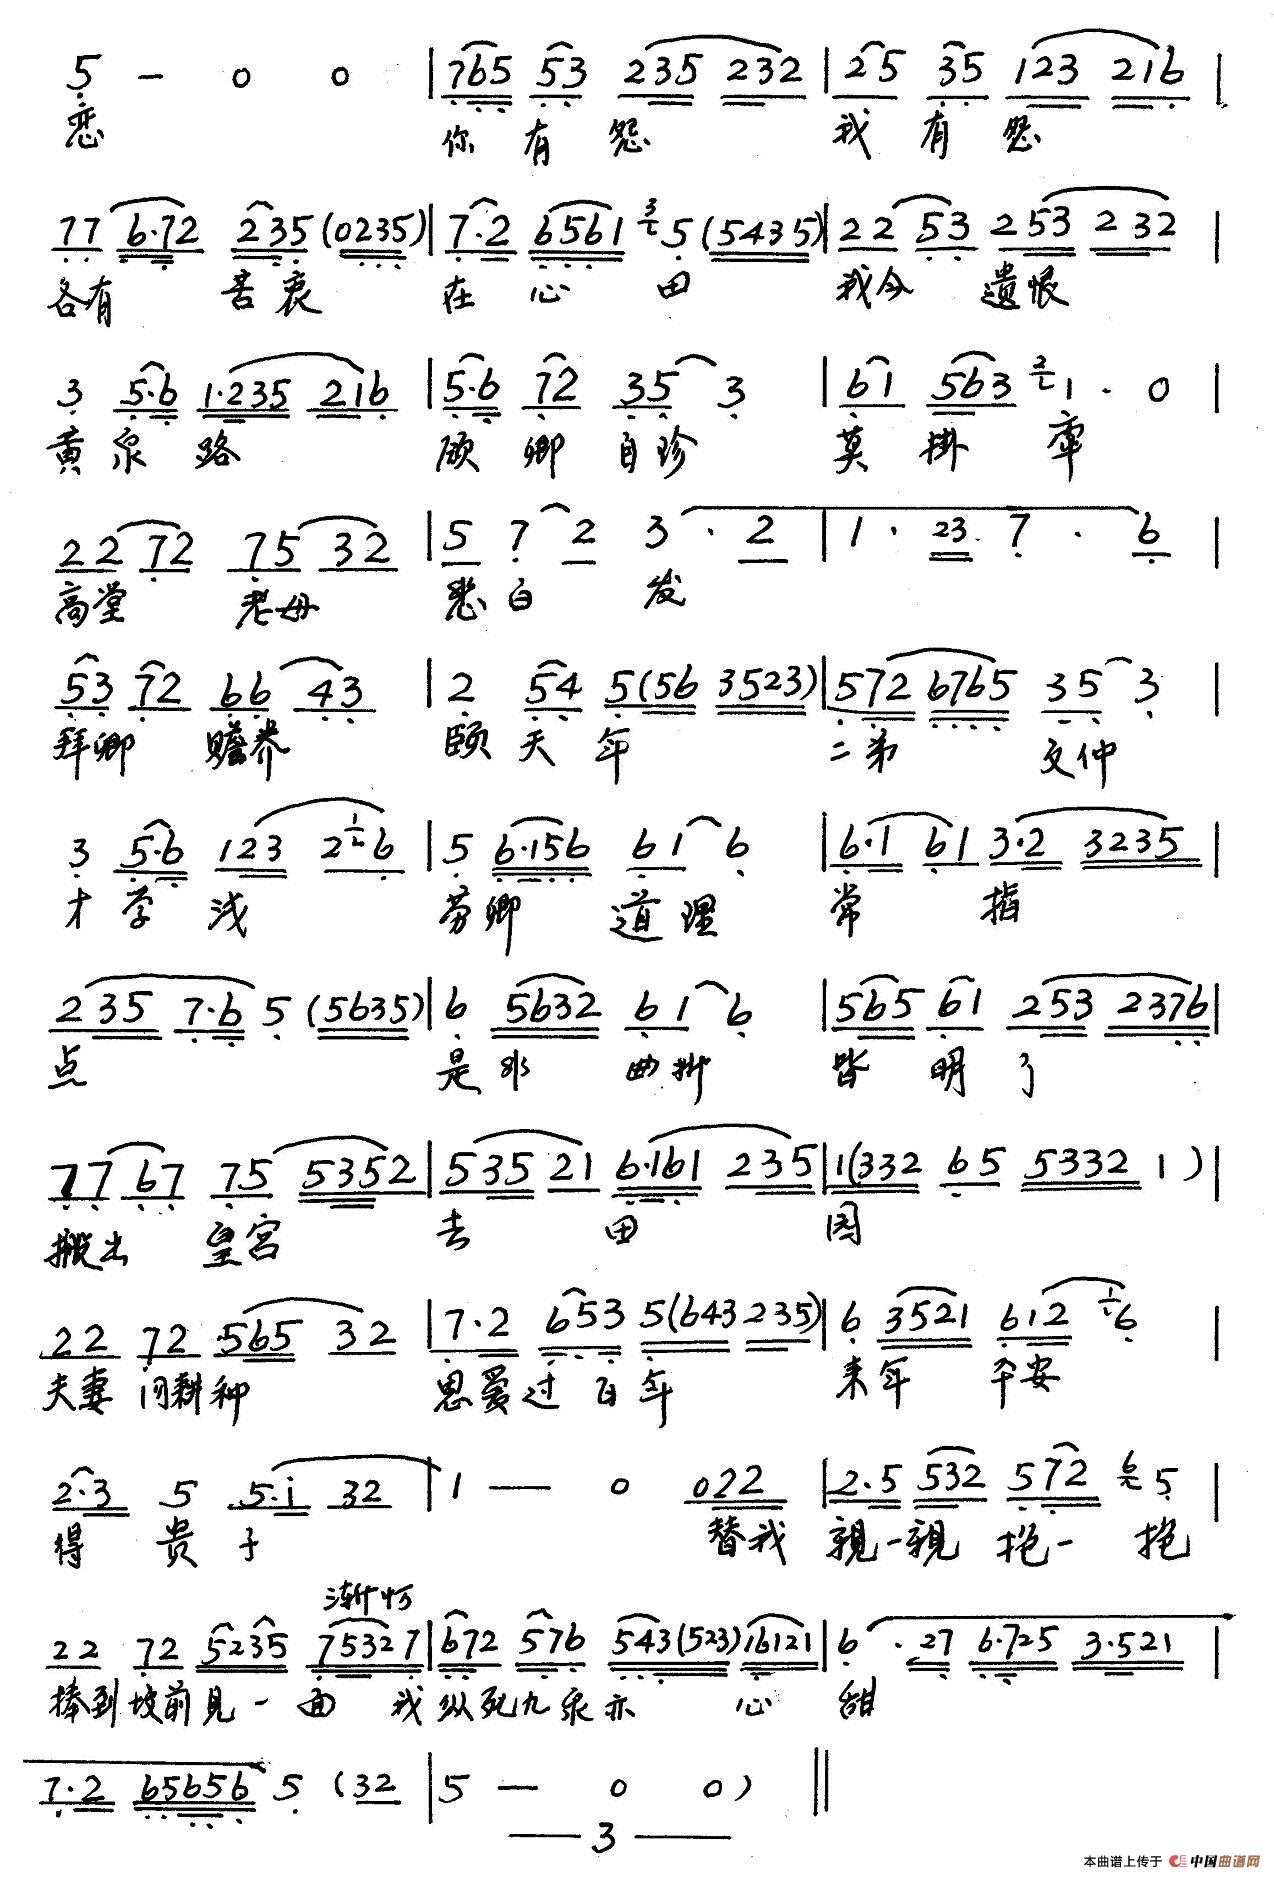 5 - 0 0 | 765 53 235 232 | 25 35 123 216 |
恋 你有怨 我有怨
77 6·72 235 (0235) | 7·2 6561 3 5 (5435) | 22 53 253 232 |
各有 苦衷 在心田 我今 遗恨
3 5·6 1·235 216 | 5·6 72 35 3 | 61 563 2 1· 0 |
黄泉路 顾卿自珍 莫掛牵
22 72 75 32 | 5 7 2 3 · 2 | 1 · 23 7 · 6
高堂 老母 愁白发
53 72 66 43 | 2 54 5(56 3523) | 572 6765 35 3
拜卿 赡养 颐天年 二弟 文仲
3 5·6 123 2 1 6 | 5 6·156 61 6 | 6·1 61 3·2 3235 |
才学浅 劳卿道理 常指
235 7·6 5 (5635) | 6 5632 61 6 | 565 61 253 2376 |
点 是非 曲折 皆明了
77 67 75 5352 | 535 21 6·161 235 | 1(332 65 5332 1) |
搬出 皇宫 去田园
22 72 565 32 | 7·2 653 5(643 235) | 6 3521 612 1 6 |
夫妻同耕种 恩爱过百年 来年 平安
2·3 5 5·i 32 | 1 — 0 022 | 2·5 532 572 6 5 |
得贵子 替我 親一親 抱一抱
渐慢
22 72 5235 75327 | 672 576 543(523) 16121 | 6 · 27 6·725 3·521 |
捧到坟前见一面 我 纵死九泉亦 心 甜
7·2 65656 5 (32 | 5 — 0 0) ‖
— 3 —
本曲谱上传于 中国曲谱网